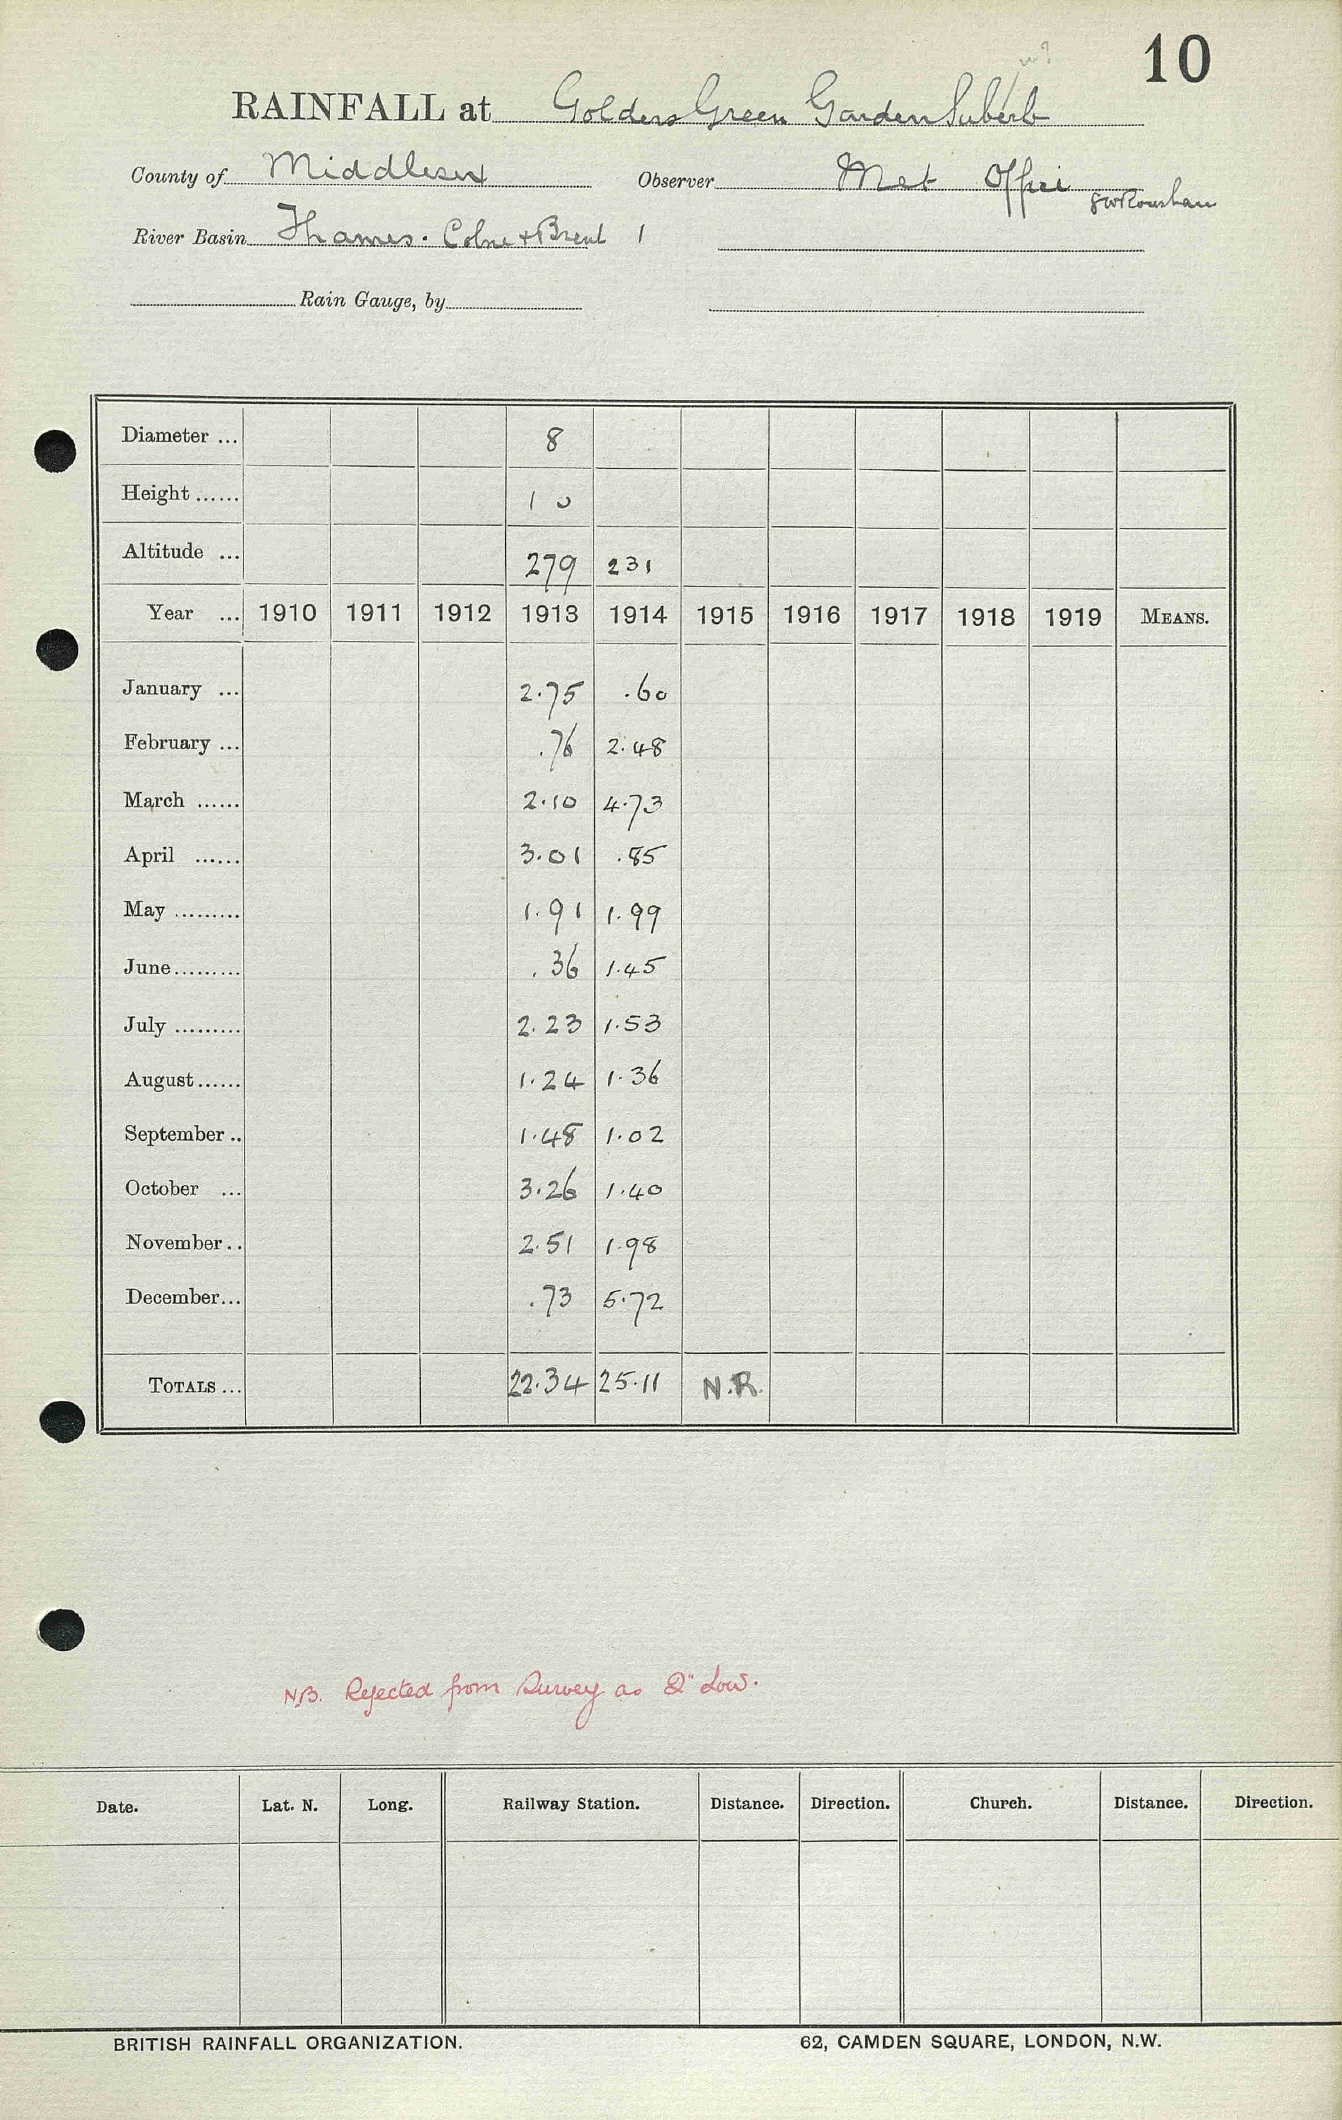 10
RAINFALL at Golders Green Garden Suburb
County of Middlesex Observer Met Office
River Basin Thames. Colne + Brent 1
Rain Gauge, by
Diameter ... 8
Height ...... 1 0
Altitude ... 279 231
Year ... 1910 1911 1912 1913 1914 1915 1916 1917 1918 1919 MEANS.
January ... 2.75 .60
February ... .76 2.48
March ...... 2.10 4.73
April ...... 3.01 .85
May ......... 1.91 1.99
June......... .36 1.45
July ......... 2.23 1.53
August...... 1.24 1.36
September .. 1.48 1.02
October ... 3.26 1.40
November .. 2.51 1.98
December... .73 5.72
TOTALS ... 22.34 25.11 N.R.
N.B. Rejected from Survey as 2" Low.
Date. Lat. N. Long. Railway Station. Distance. Direction. Church. Distance. Direction.
BRITISH RAINFALL ORGANIZATION. 62, CAMDEN SQUARE, LONDON, N.W.